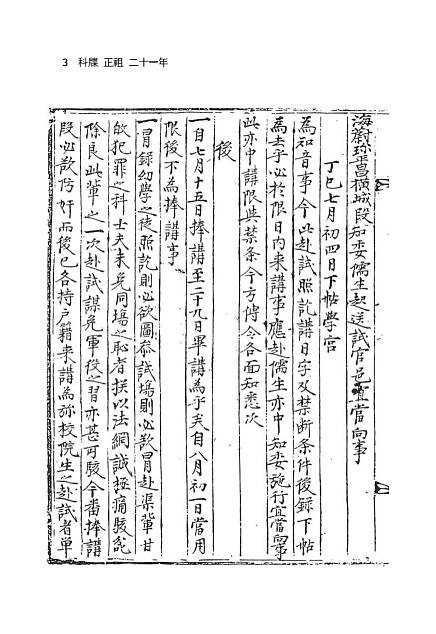 3 科牒 正祖 二十一年
海蔚珍平昌橫城段知委儒生起送試官邑宜當向事
丁巳七月初四日下帖學宮
爲知音事今此赴試照訖講日字及禁斷条件後錄下帖
爲去乎必於限日內来講事應赴儒生亦中知委施行宜當向事
此亦中講限與禁条今方傳令各面知悉次
後
一自七月十五日捧講至二十九日畢講爲乎矣自八月初一日當用
限後不爲捧講事
一冒錄幼學之徒照訖則必欲圖參試場則必欲冒赴渠輩甘
犯罪之科士夫未免同場之恥者揆以法綱誠極痛駭
除良此輩之一次赴試謀免軍役之習亦甚可駭今番捧講
段必欲防奸而後已各持户籍来講爲旀校院生之赴試者單